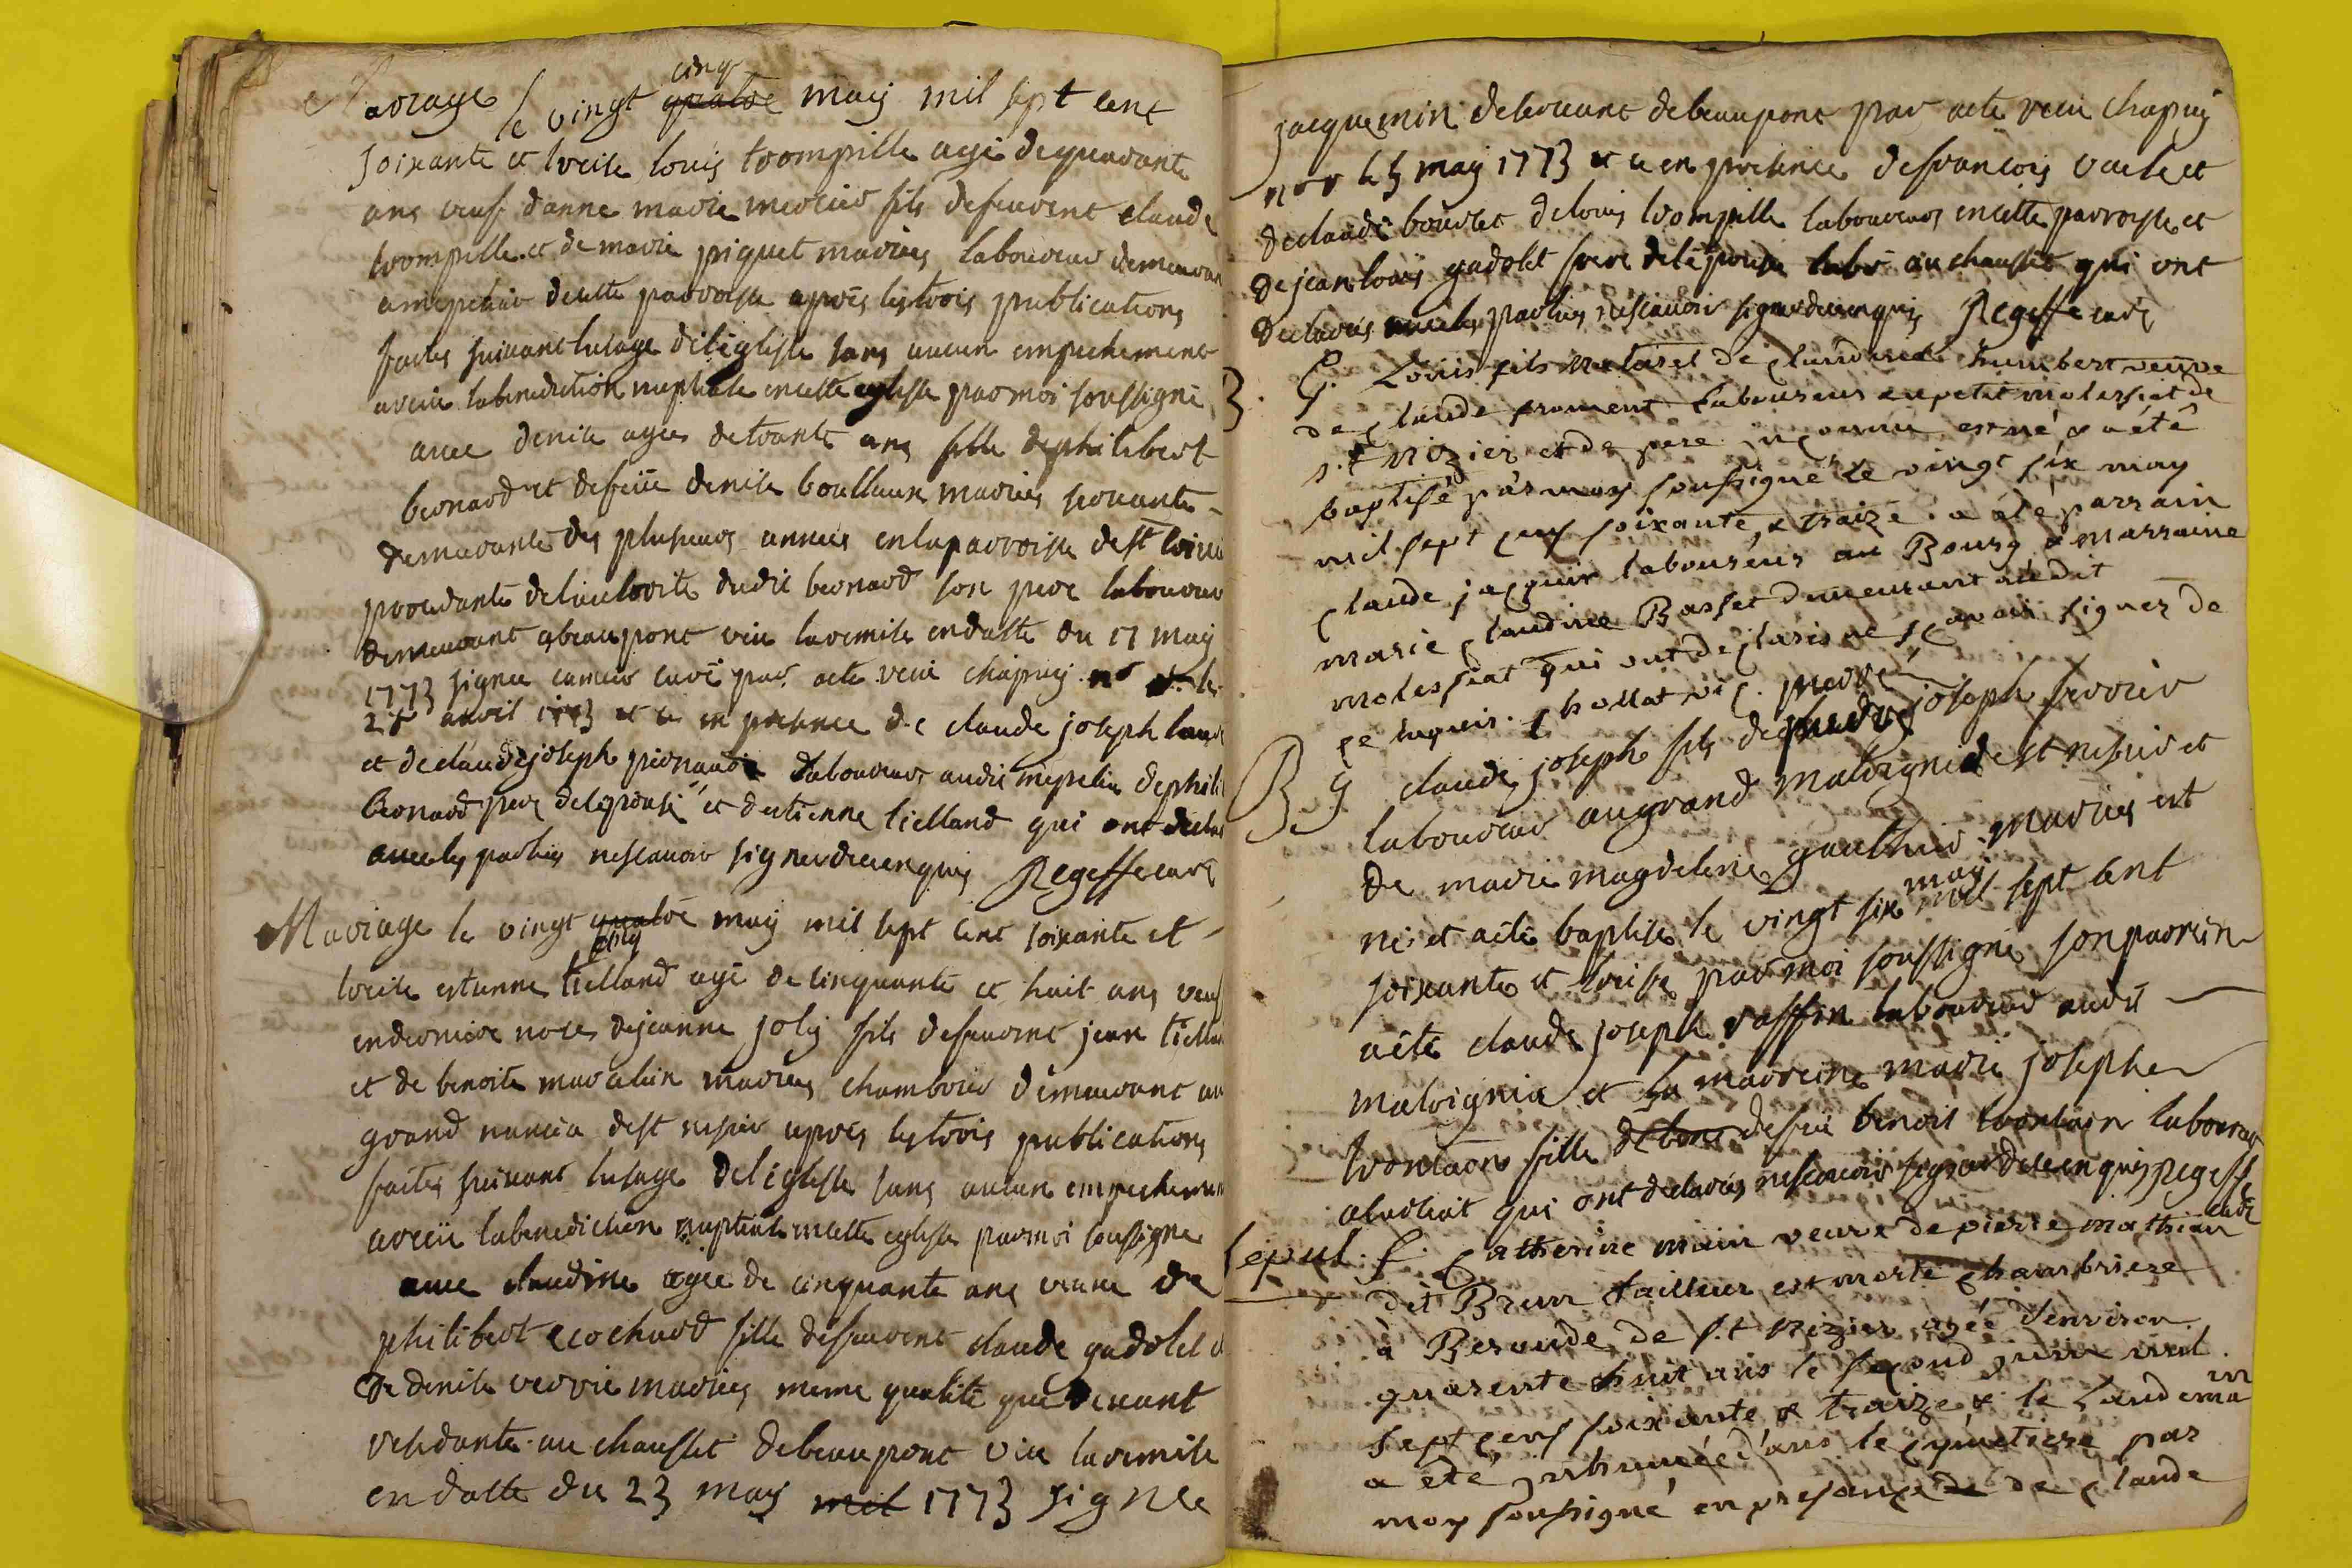 Mariage le vingt quatre cinq may mil sept cent
soixante et treise louis trompille agé de quarante
ans veuf danne marie mercier fils defeurent claude
trompille et de marie piquet mariés laboureur demeurant
a mepeliin decette parroisse après les trois publications
faites suivant lusage deleglise sans aucun empechement
a reçu labenediction nuptiale encette eglise par moi soussigné
avec denise agée detrante ans fille dephilibert
bernard et defeüe denise boullaux mariés servante
demeurante des plusieurs années enlaparroisse de st
procedante delautorité dudit bernard son pere laboureur
demeurant abeaupont veu laremise endatte du 17 may
1773 signee curé par acte reçu chapuy nre le
28 avril 1773 et ce en presence de claude joseph
et declaude joseph pernaud laboureur audit mepeliin dephili
bernard pere delepouse et destienne tielland qui ont declaré
avec les parties nescavoir signer de ce enquis Regeffe curé
Mariage le vingt quatre cinq may mil sept cent soixante et
treise estienne tielland agé de cinquante et huit ans veuf
endernier noces dejeanne joly fils defeurent jean tielland
et de benoite marcelin mariés chambrier demeurant au
grand nancia dest nisier après les trois publications
faites suivant lusage deleglise sans aucun empechement
a reçu labenediction nuptiale encette eglise parmoi soussigné
avec claudine agée de cinquante ans veuve de
philibert ecochard fille defeurent claude gadolet et
de denise verrie mariés meme qualité que devant
residante au chausset debeaupont veu laremise
en datte du 23 may mil 1773 signee
jacquemin deservant debeaupont par acte reçu chapuy
nre le 5 may 1773 et ce en presence defrancois vache et
declaude bouvlet delouis trompille laboureurs encette parroisse et
dejean louis gadolet frere delepouse labr au chausset qui ont
declarés avec les parties nescavoir signer de ce enquis Regeffe curé
B. G. Louis fils naturel de claudine humbert veuve
de claude froment laboureur au petit molessiat de
s.t nizier et de pere inconnu est né & a été
baptisé par moy soussigné le vingt six may
mil sept cens soixante & traize. a été parrain
claude jacquin laboureur au Bourg & marraine
marie claudine Basset demeurant audit
molessiat qui ont declarés ne sçavoir signer de
ce enquis. chollat vic.
B. g claude joseph fils de pierre joseph ferrier
laboureur augrand malvignia dest nisier et
de marie magdeleine gauthier mariés est
né et aété baptisé le vingt six may mil sept cent
soixante et treise par moi soussigné son parrein
aété claude joseph raffin laboureur audit
malvignia et la marreine marie josephe
trontaon fille de bene defeu benoit trontaon laboureur
aludliat qui ont declarés nescavoir signer de ce enquis Regeffe
curé
sepul. f. Catherine main veuve de pierre mathian
dit Brun taillieur est morte chambriere
à Beraude de s.t Nizier agée d'environ
quarente huit ans le second juin mil
sept cens soixante & traize & le landemain
a été inhumée dans le cymetiere par
moy soussigné en presence de de claude